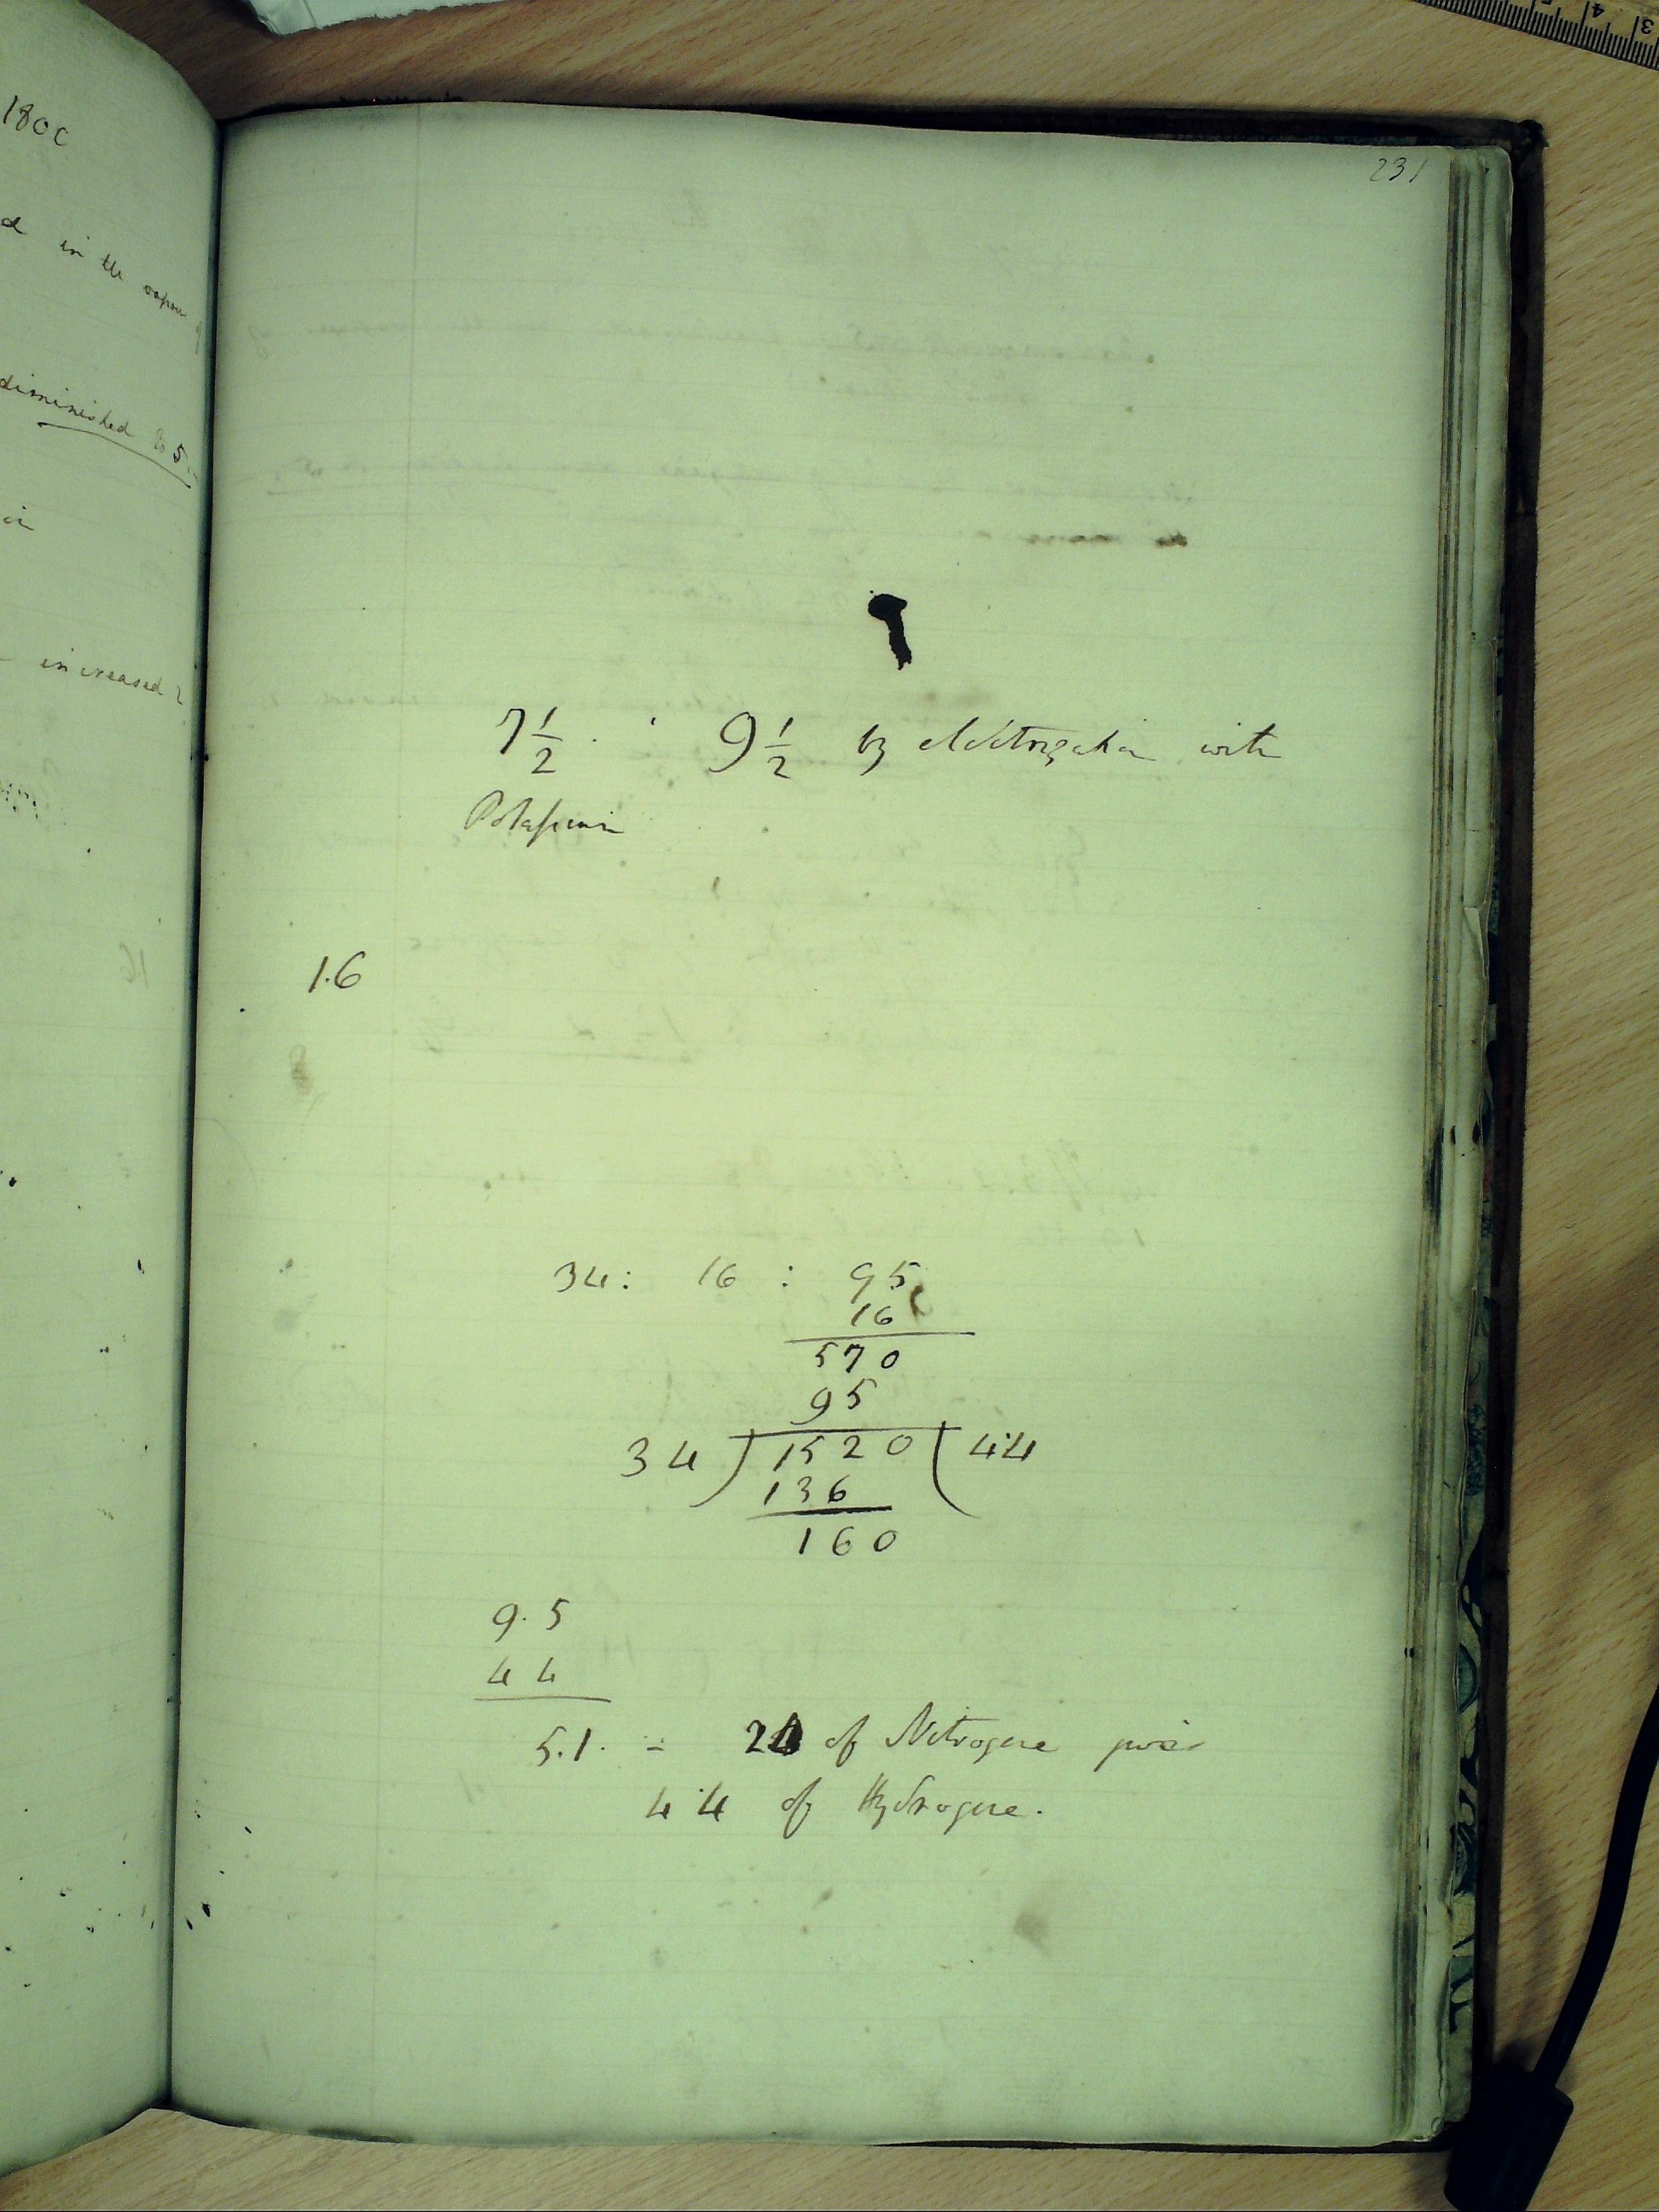 1800
in the vapour
diminished to 5.
in
increased 2
231
7 1/2 . ' 9 1/2 by electrization with
Potassium
1.6
34: 16 : 95
16
570
95
34 ) 1520 ( 4.4
136
160
9.5
4 4
5.1. = 2 of Nitrogene
4.4 of Hydrogene.